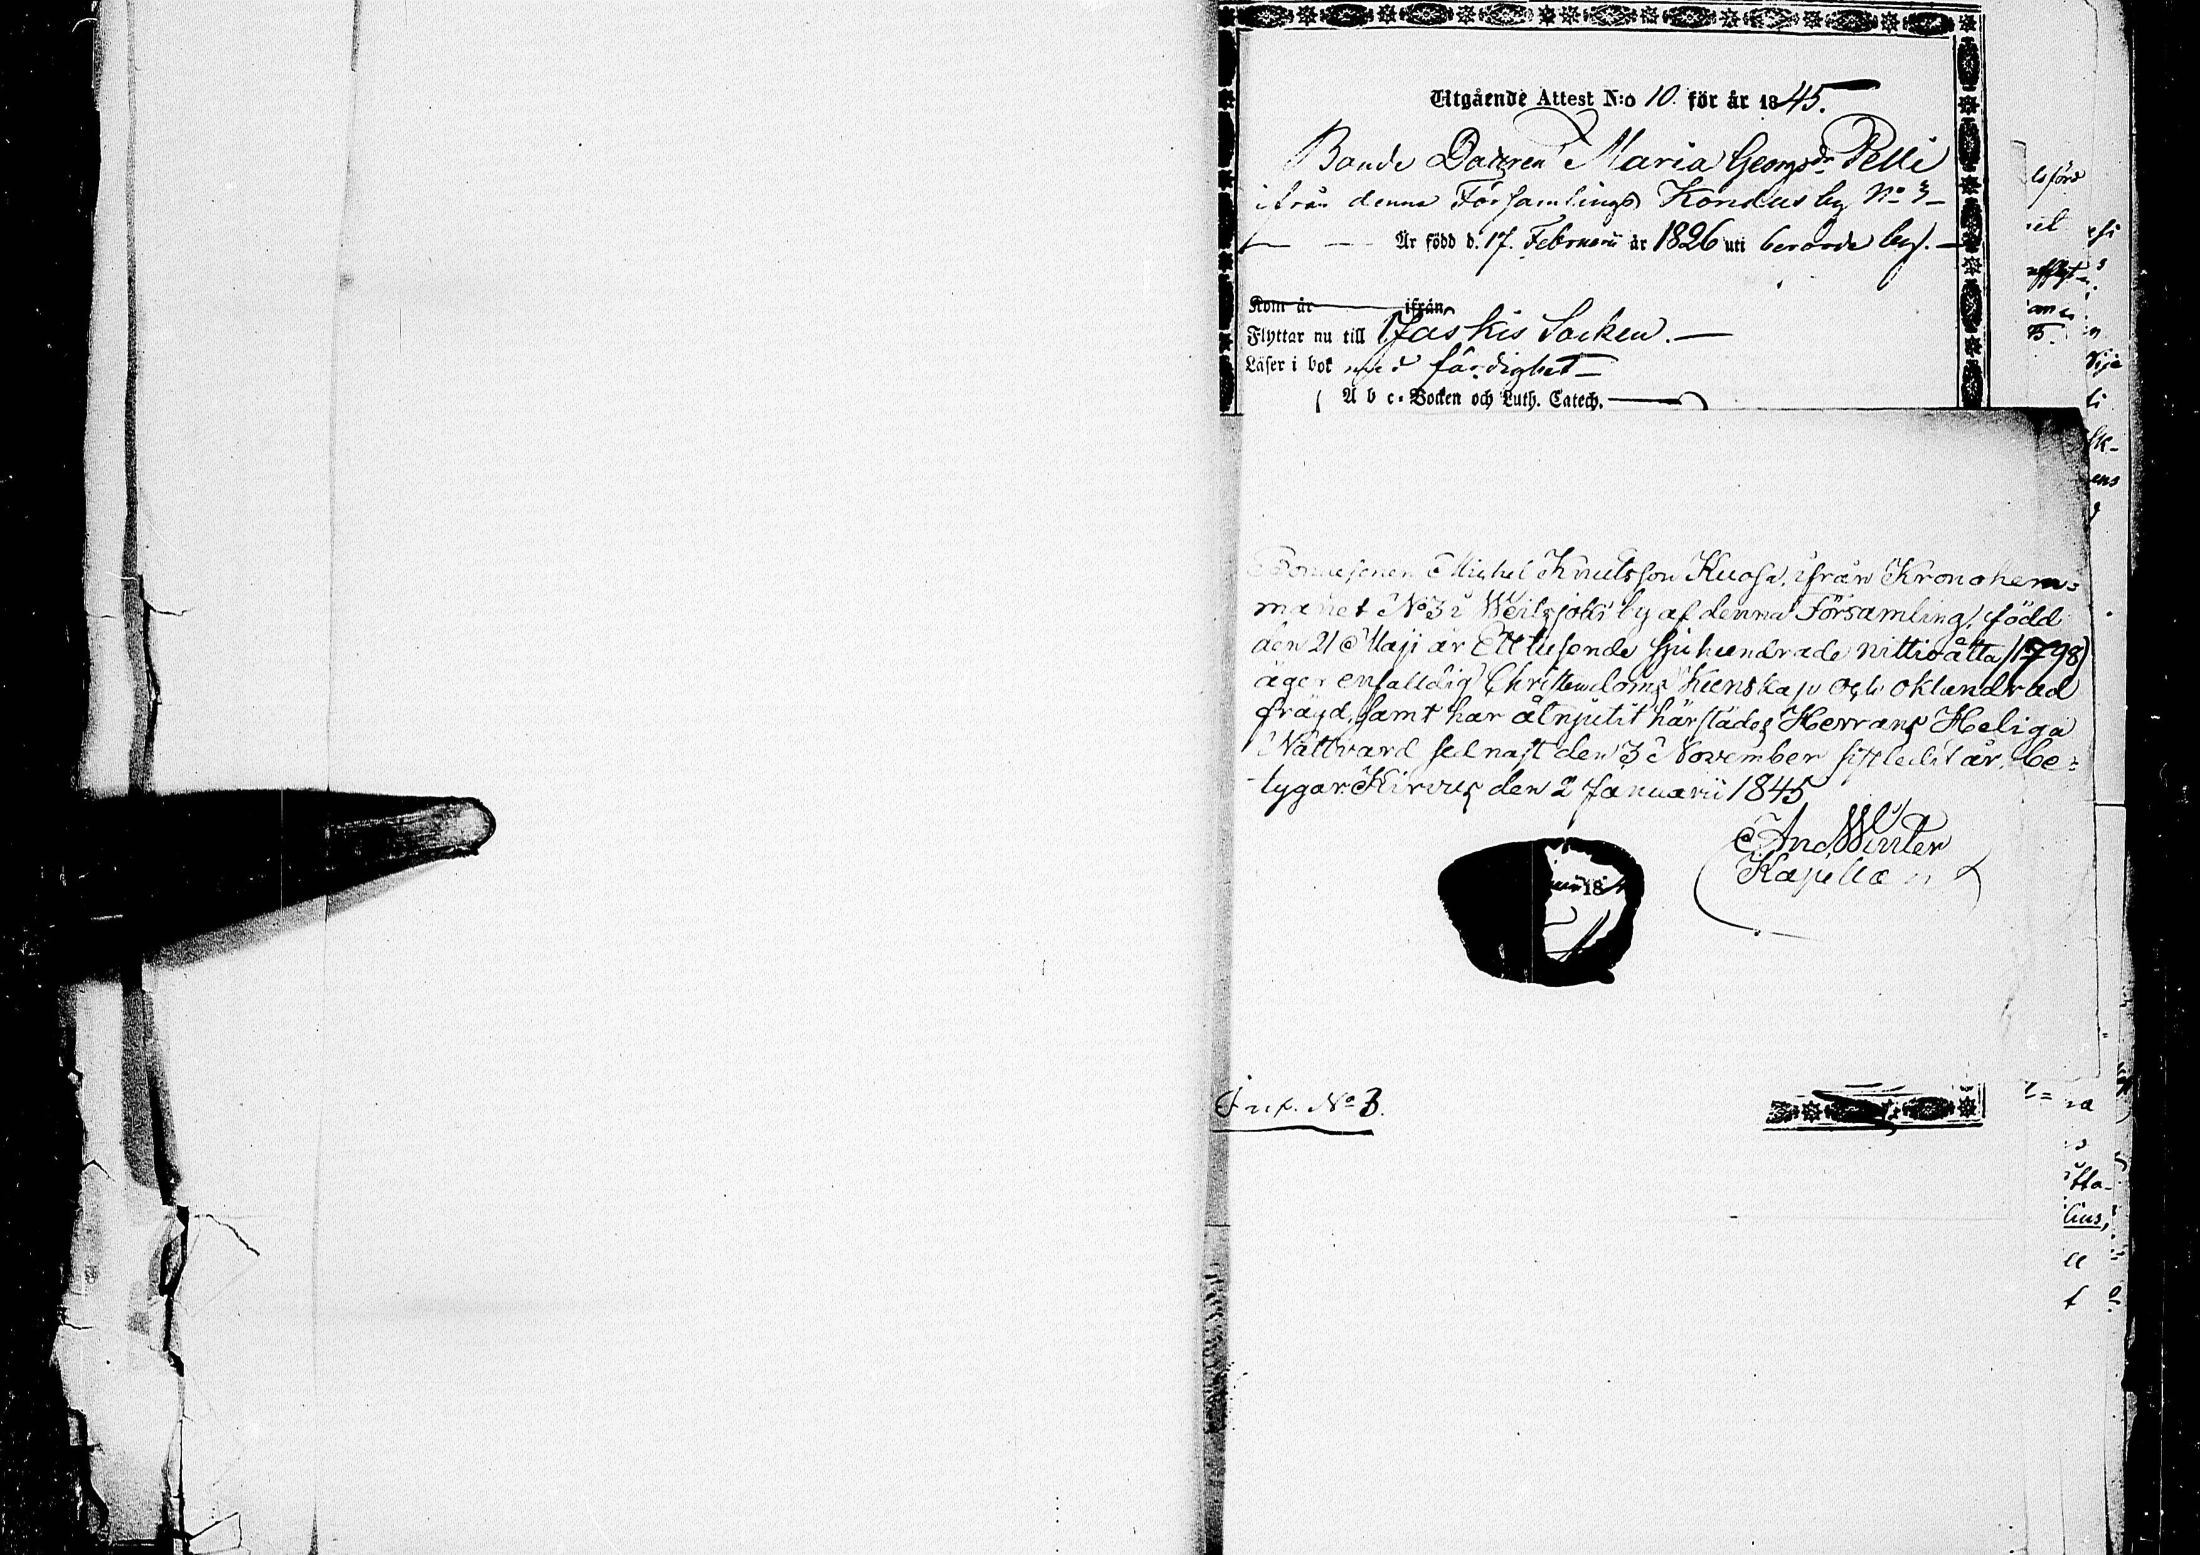 Utgående Attest N:o 10. för år 1845.
Bonde Dottren Maria Georgsdr Pelli
ifrån denna Församlings Kondus by No 3
Är född d. 17. Februarii år 1826 uti berörde by.
Kom år ifrån
Flyttar nu till Jaskis Socken.
Läser i bok med färdighet
A b c-Boken och Luth. Catech.
Bondesonen Michel Knutsson Kuosa, ifrån Kronohem-
manet No 3 i Weitsjoki by af denna Församling, född
den 21 Maji år Ett tusende sju hundrade nittio åtta (1798)
äger enfaldig Christendoms Kunskap och oklandrad
fräjd, samt har åtnjutit härstädes Herrans Heliga
Nattvard sednast den 3 November sistledit år, be-
tygar. Kirvus den 2 Januarii 1845
And Winter
Kapellan
18
Ink. No 3.